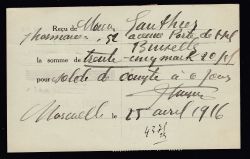 Reçu de Mons Gauthier
pharmacien, 52 avenue Porte de Hal
Bruxelles
la somme de trente-cinq mark 20 pf
pour solde de compte à ce jour
le 25 avril 1916